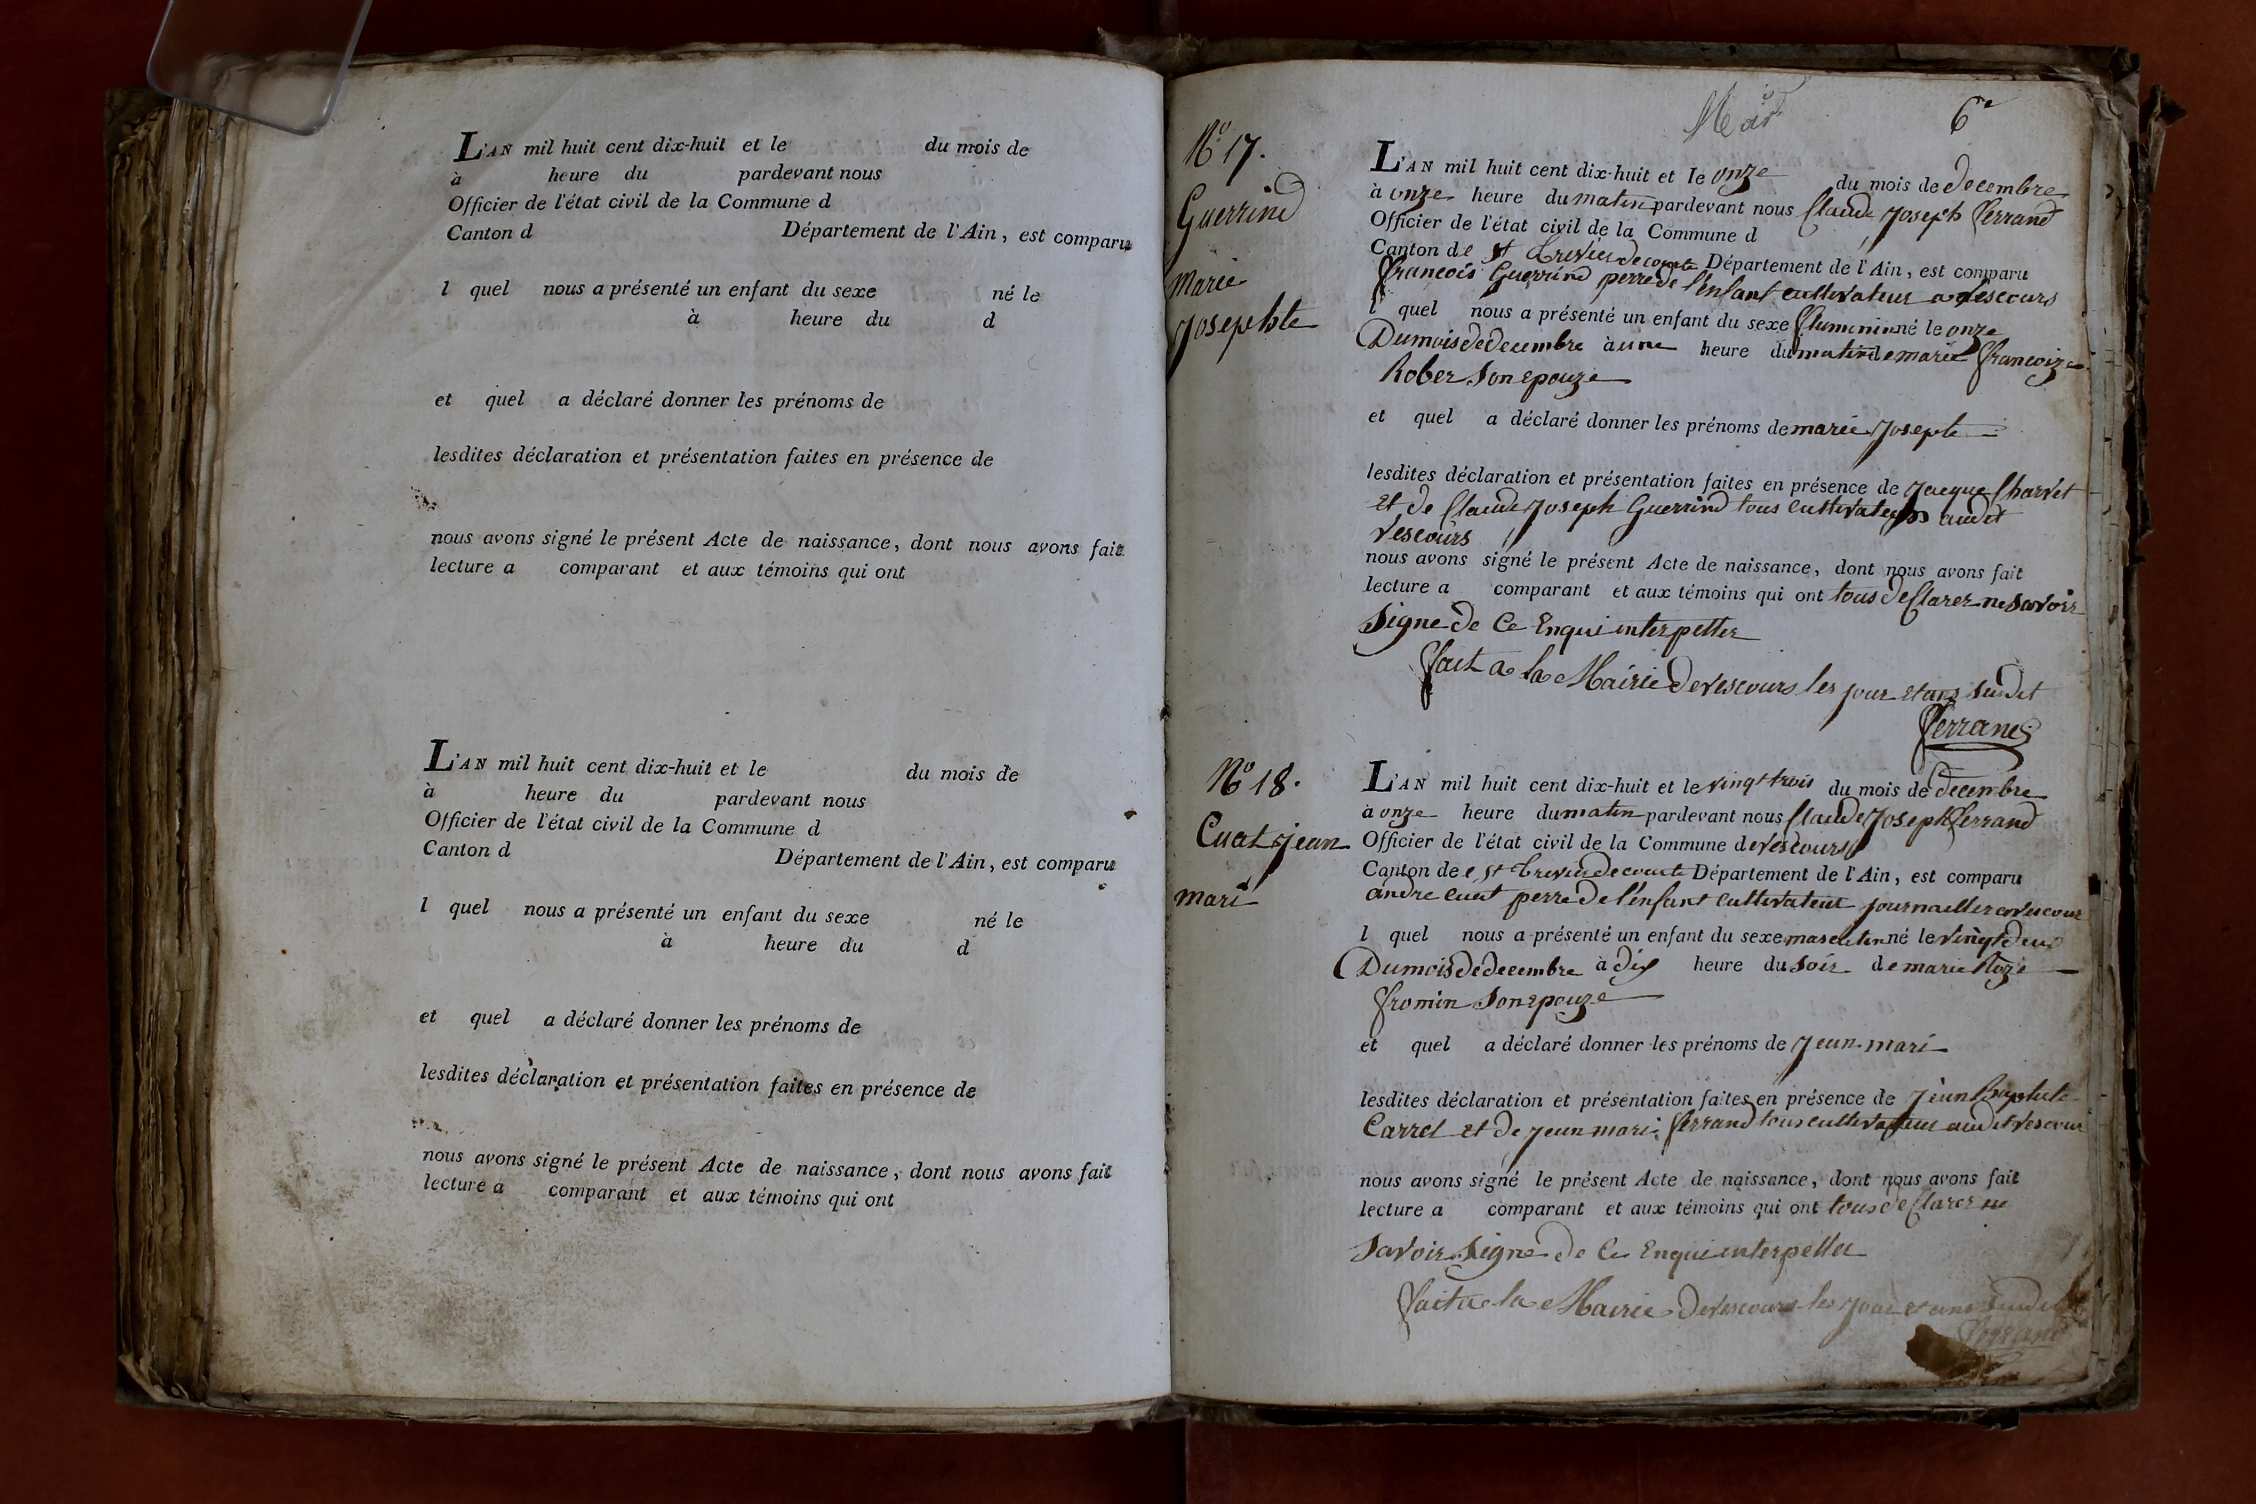 L'AN mil huit cent dix-huit et le du mois de
à heure du pardevant nous
Officier de l'état civil de la Commune d
Canton d Département de l'Ain, est comparu
l quel nous a présenté un enfant du sexe né le
à heure du d
et quel a déclaré donner les prénoms de
lesdites déclaration et présentation faites en présence de
nous avons signé le présent Acte de naissance, dont nous avons fait
lecture a comparant et aux témoins qui ont
L'AN mil huit cent dix-huit et le du mois de
à heure du pardevant nous
Officier de l'état civil de la Commune d
Canton d Département de l'Ain, est comparu
l quel nous a présenté un enfant du sexe né le
à heure du d
et quel a déclaré donner les prénoms de
lesdites déclaration et présentation faites en présence de
nous avons signé le présent Acte de naissance, dont nous avons fait
lecture a comparant et aux témoins qui ont
6e
No 17.
Guerrind
marie
Josephte
L'AN mil huit cent dix-huit et le onze du mois de decembre
à onze heure du matin pardevant nous Claude Joseph ferrand
Officier de l'état civil de la Commune d
Canton de st trevier de courte Département de l'Ain, est comparu
francois Guerrind perre de l'enfant cultivateur a vescours
l quel nous a présenté un enfant du sexe né le onze
Dumois de decembre à une heure du matin de marie francoize
Rober son epouze
et quel a déclaré donner les prénoms de marie Josephte
lesdites déclaration et présentation faites en présence de Jacque Charvet
et de Claude Joseph Guerrind tous cultivateurs audit
vescours
nous avons signé le présent Acte de naissance, dont nous avons fait
lecture a comparant et aux témoins qui ont tous de Clarer ne savoir
signe de Ce Enqui interpetter
fait a la Mairie de vescours les jour et ans sudit
ferrand
No 18.
Cuat jean
mari
L'AN mil huit cent dix-huit et le vingt trois du mois de decembre
à onze heure du matin pardevant nous Claude Joseph ferrand
Officier de l'état civil de la Commune de vescours
Canton de st trevier de courte Département de l'Ain, est comparu
andre cuat perre de l'enfant cultivateur journallier a vescour
l quel nous a présenté un enfant du sexe masculin né le vingt deux
Dumois de decembre à dix heure du soir de marie Roze
fromin son epouze
et quel a déclaré donner les prénoms de Jean mari
lesdites déclaration et présentation faites en présence de Jean Baptiste
Carrel et de Jean mari ferrand tous cultivateur audit vescour
nous avons signé le présent Acte de naissance, dont nous avons fait
lecture a comparant et aux témoins qui ont tous de Clarer ne
savoir signe de Ce Enqui interpetter
fait a la Mairie de vescours les jour et ans sudit
ferrand